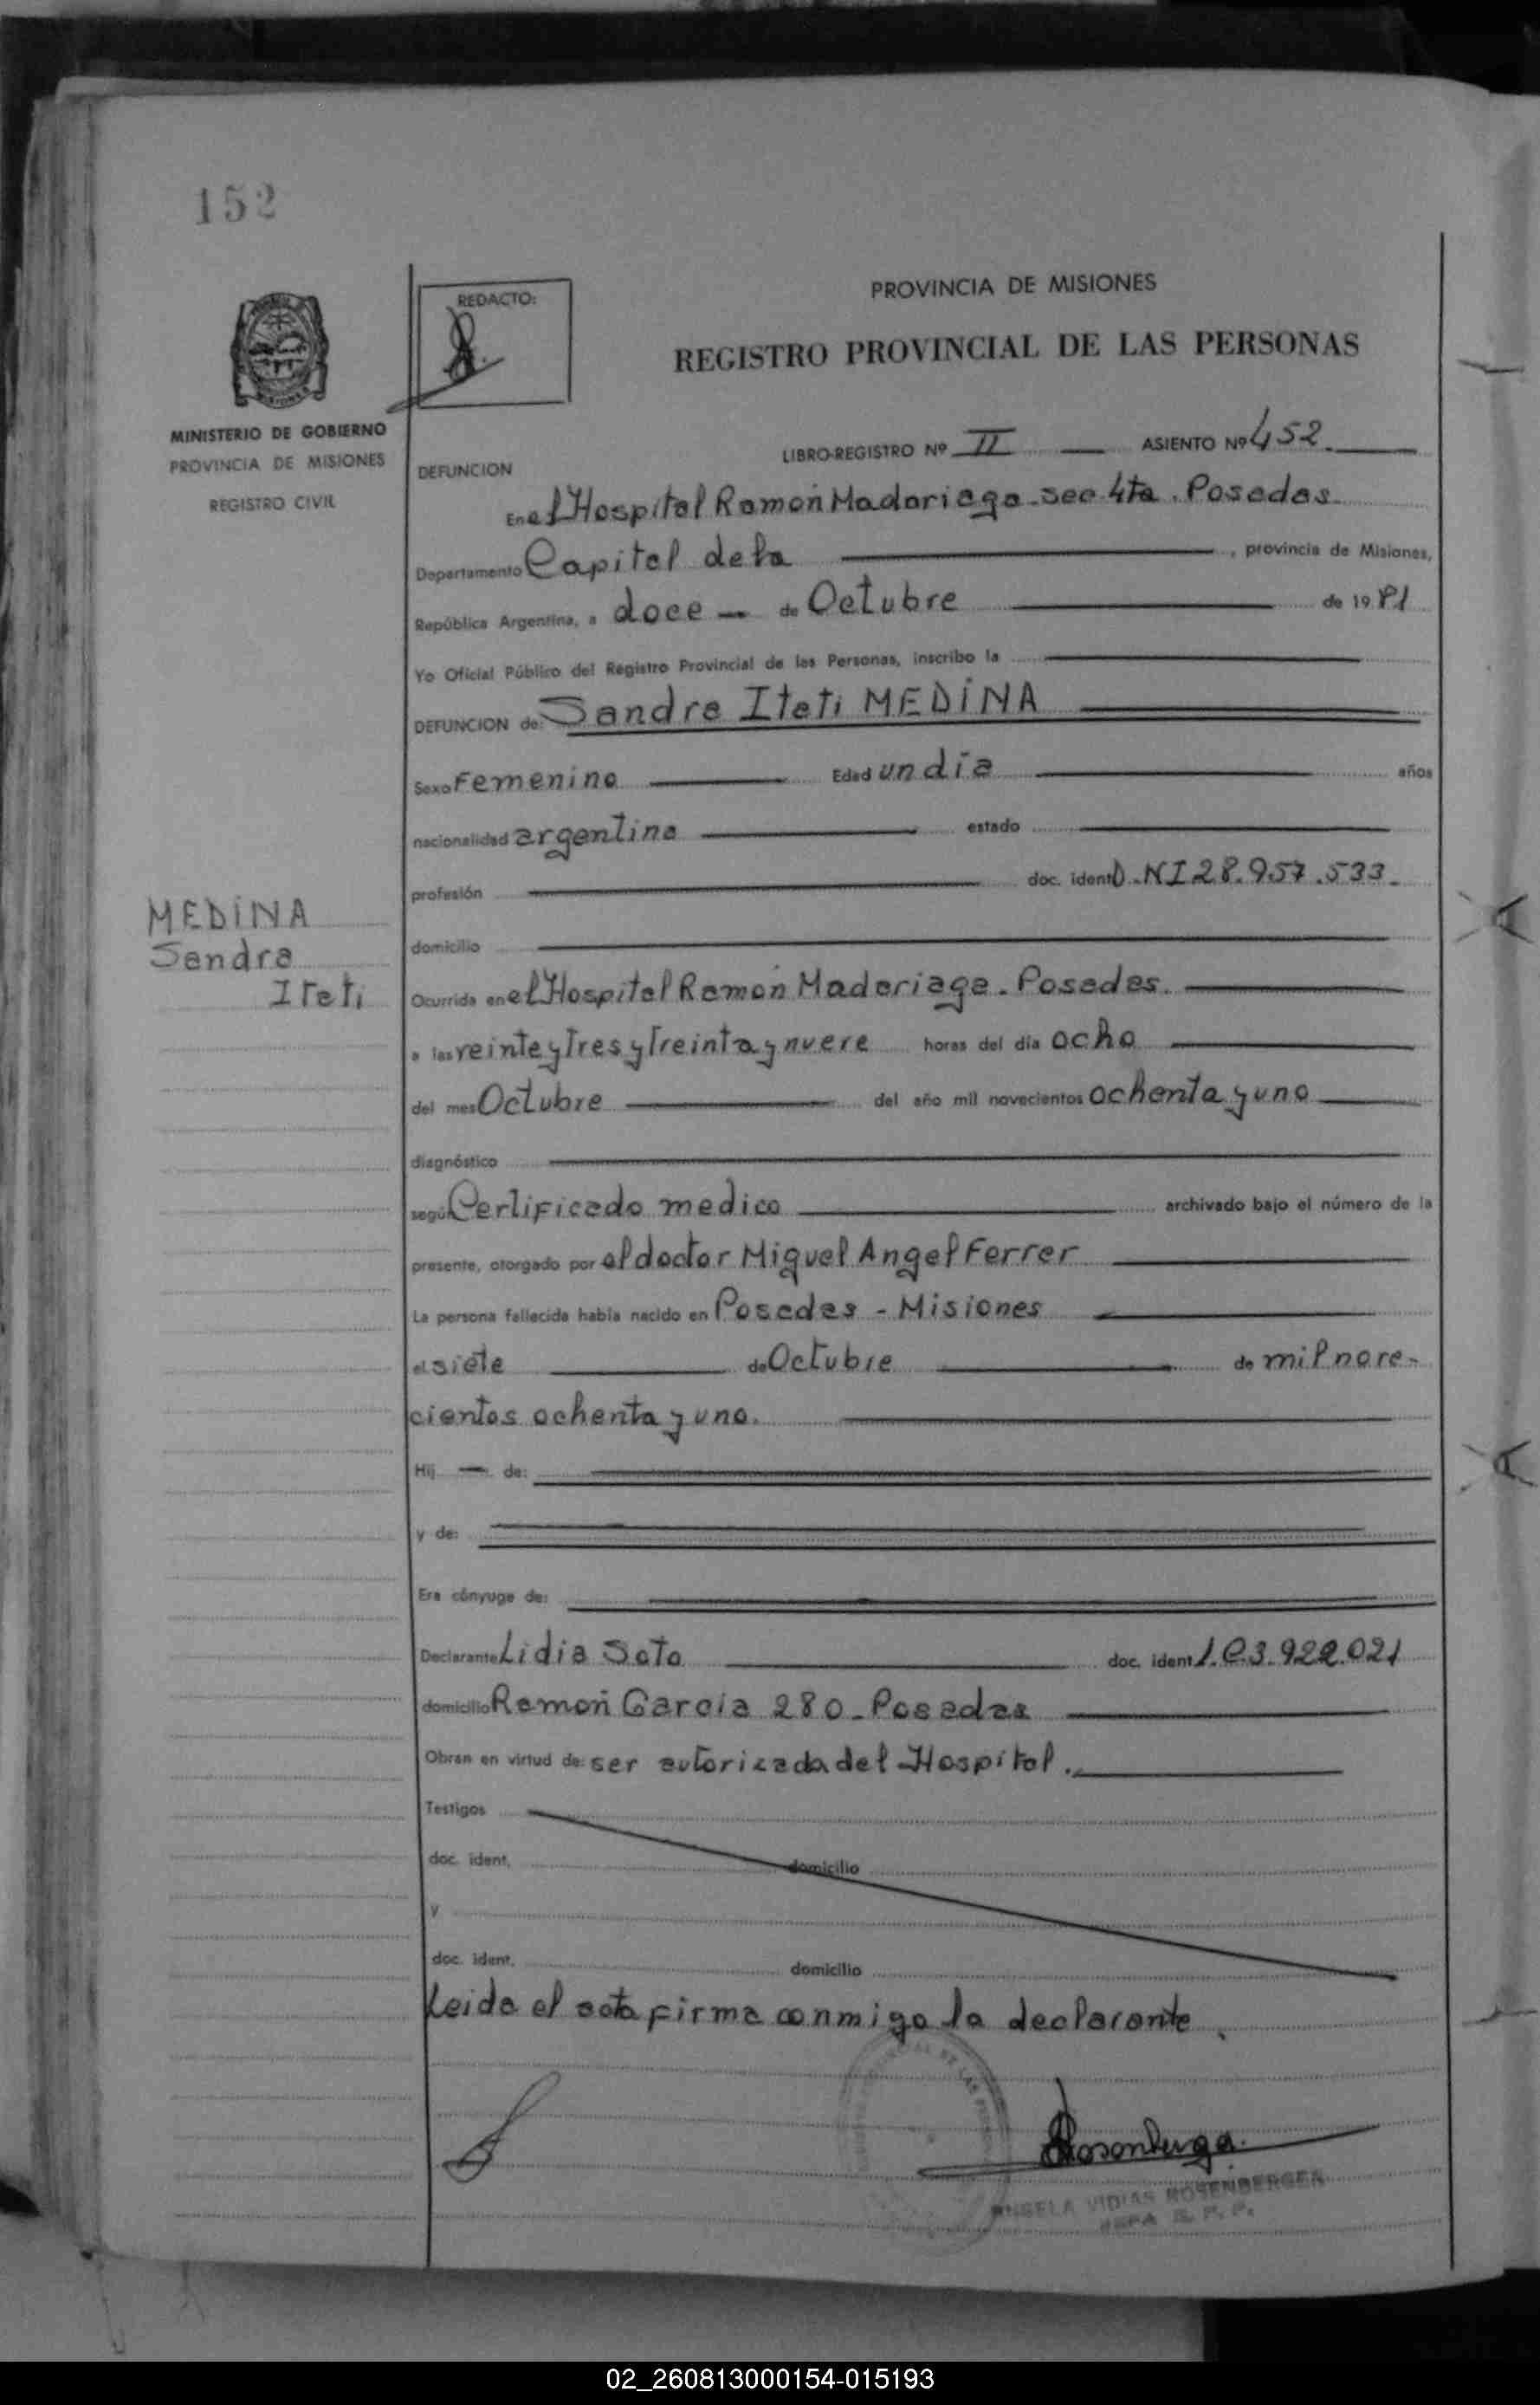 152
REDACTO:
PROVINCIA DE MISIONES
REGISTRO PROVINCIAL DE LAS PERSONAS
MINISTERIO DE GOBIERNO
PROVINCIA DE MISIONES
REGISTRO CIVIL
LIBRO-REGISTRO Nº II ASIENTO Nº 452.
DEFUNCION
En el Hospital Ramón Madariaga - sec. 4ta. Posadas.
Departamento Capital de la , provincia de Misiones,
República Argentina, a doce de Octubre de 1981
Yo Oficial Público del Registro Provincial de las Personas, inscribo la
DEFUNCION de: Sandra Itati MEDINA
Sexo Femenino Edad un día años
nacionalidad argentina estado
profesión doc. ident. D.N.I 28.957.533.
MEDINA
Sandra
Itati
domicilio
Ocurrida en el Hospital Ramón Madariaga. Posadas.
a las veinte y tres y treinta y nueve horas del día ocho
del mes Octubre del año mil novecientos ochenta y uno
diagnóstico
según Certificado medico archivado bajo el número de la
presente, otorgado por el doctor Miguel Angel Ferrer
La persona fallecida había nacido en Posadas - Misiones
el siete de Octubre de mil nove-
cientos ochenta y uno.
Hij de:
y de:
Era cónyuge de:
Declarante Lidia Soto doc. ident. L.C 3.922.021
domicilio Ramón García 280 - Posadas
Obran en virtud de: ser autorizada del Hospital.
Testigos
doc. ident. domicilio
y
doc. ident. domicilio
Leida el acta firma conmigo la declarante.
ANGELA VIDIAS ROSENBERGER
JEFA
02_260813000154-015193